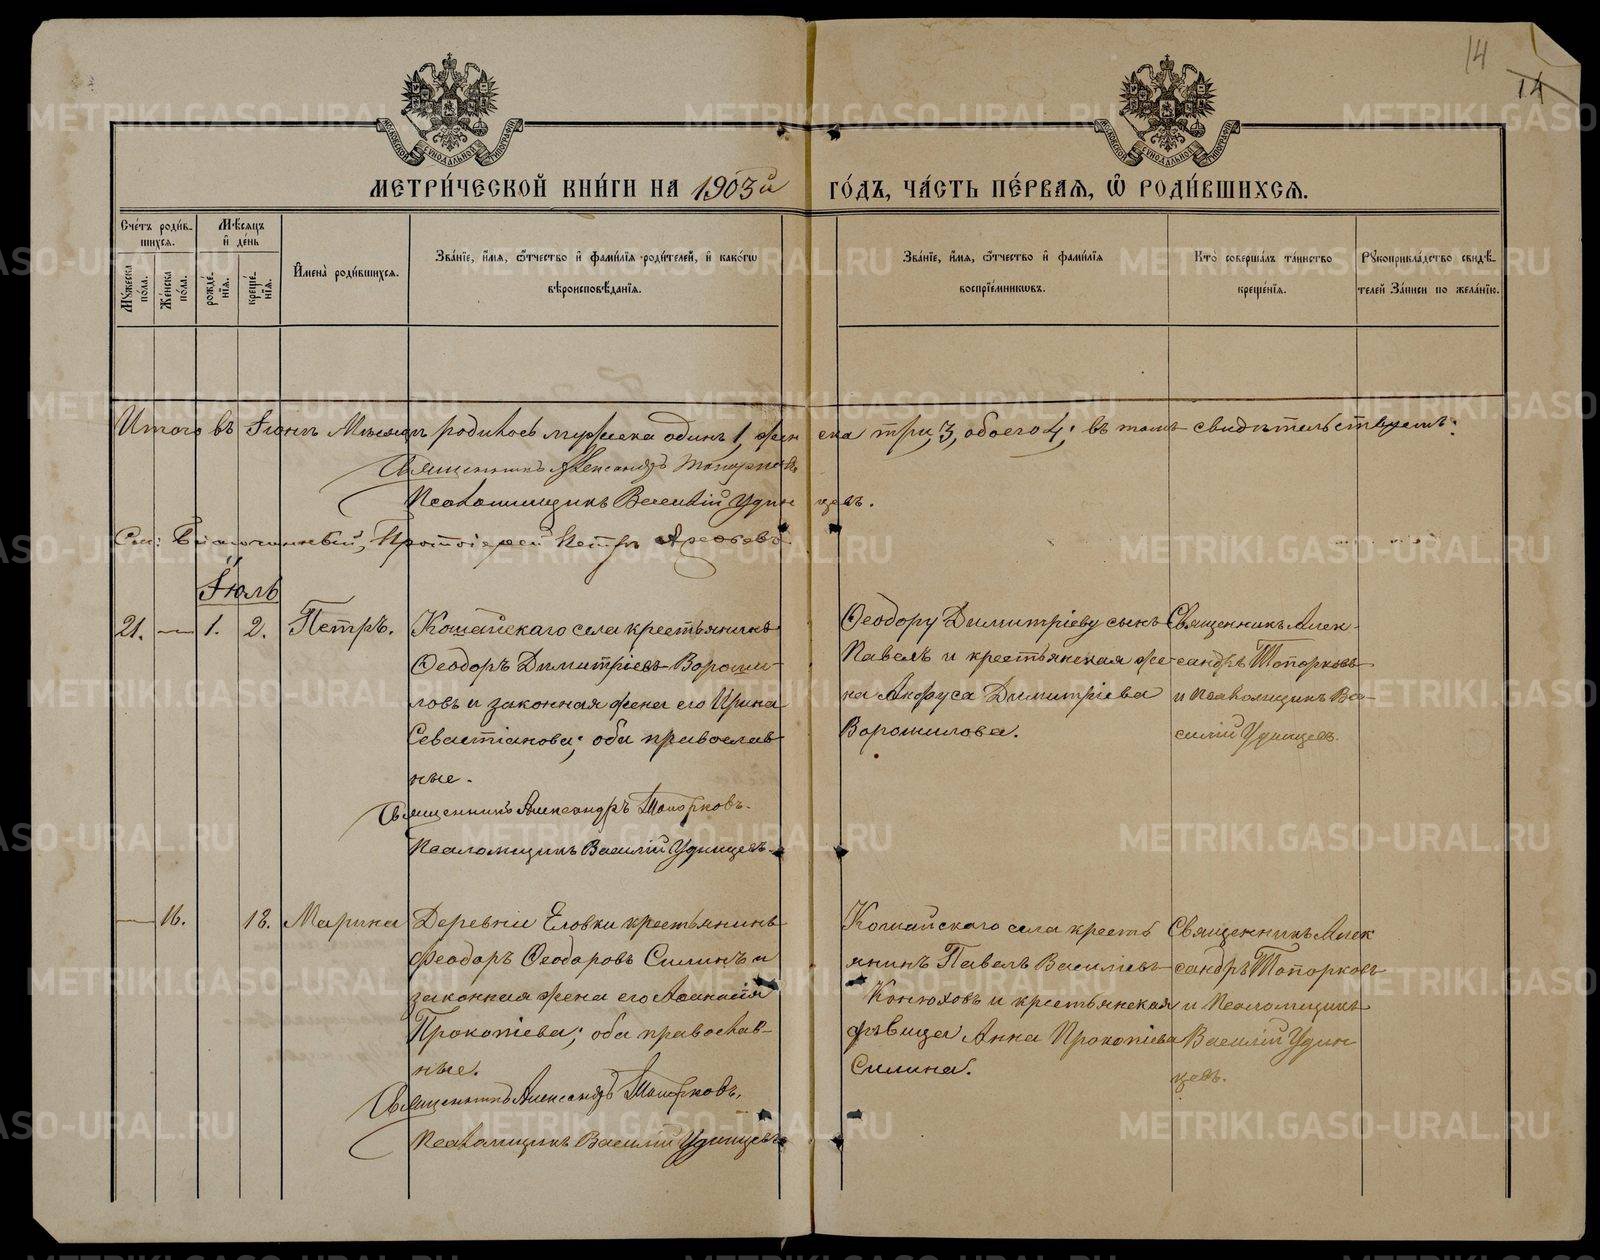 14
14
МЕТРИ́ЧЕСКОЙ КНИ́ГИ НА 1903й ГО́ДЪ, ЧА́СТЬ ПЕ́РВАЯ, Ѽ РОДИ́ВШИХСЯ.
Сче́тъ роди́вшихся.
Мужеска по́ла.
Же́нска по́ла.
Мѣ́сяцъ и҆ де́нь
рожде́нїя.
креще́нїя.
И҆мена̀ роди́вшихся.
Зва́нїе, и҆́мя, ѻ҆́тчество и҆ фами́лїя роди́телей, и҆ како́гѡ
вѣроисповѣ́данїя.
Зва́нїе, и҆́мя, ѻ҆́тчество и҆ фами́лїя
воспрїе́мникѡвъ.
Кто̀ соверша́лъ та́инство
креще́нїя.
Рукоприкла́дство свидѣ́-
телей за́писи по жела́нїю.
Итого въ Іюнѣ Мѣсяцѣ родилось мужеска одинъ 1, женска три, 3, обоего 4; въ томъ свидѣтельствуемъ:
Священникъ Александръ Топорковъ
Псаломщикъ Василій Удинцевъ.
См: Благочинный, Протоіерей Петръ
Іюль
21. — 1. 2. Петръ.
Кошайскаго села крестьянинъ
Ѳеодоръ Димитріевъ Вороши-
ловъ и законная жена его Ирина
Севастіанова; оба православ-
ные.
Священникъ Александръ Топорковъ.
Псаломщикъ Василій Удинцевъ.
Ѳеодору Димитріеву сынъ
Павелъ и крестьянская же-
на Анфуса Димитріева
Ворошилова.
Священникъ Алек-
сандръ Топорковъ
и Псаломщикъ Ва-
силій Удинцев.
— 16. 18. Марина
Деревни Еловки крестьянинъ
Феодоръ Ѳеодоровъ Силинъ и
законная жена его Аѳанасія
Прокопіева; оба православ-
ные.
Священникъ Александръ Топорковъ,
Псаломщикъ Василій Удинцевъ
Кошайскаго села кресть
янинъ Павелъ Василіевъ
Конюховъ и крестьянская
дѣвица Анна Прокопіева
Силина.
Священникъ Алек
сандръ Топорковъ
и Псаломщикъ
Василій Удин
цевъ.